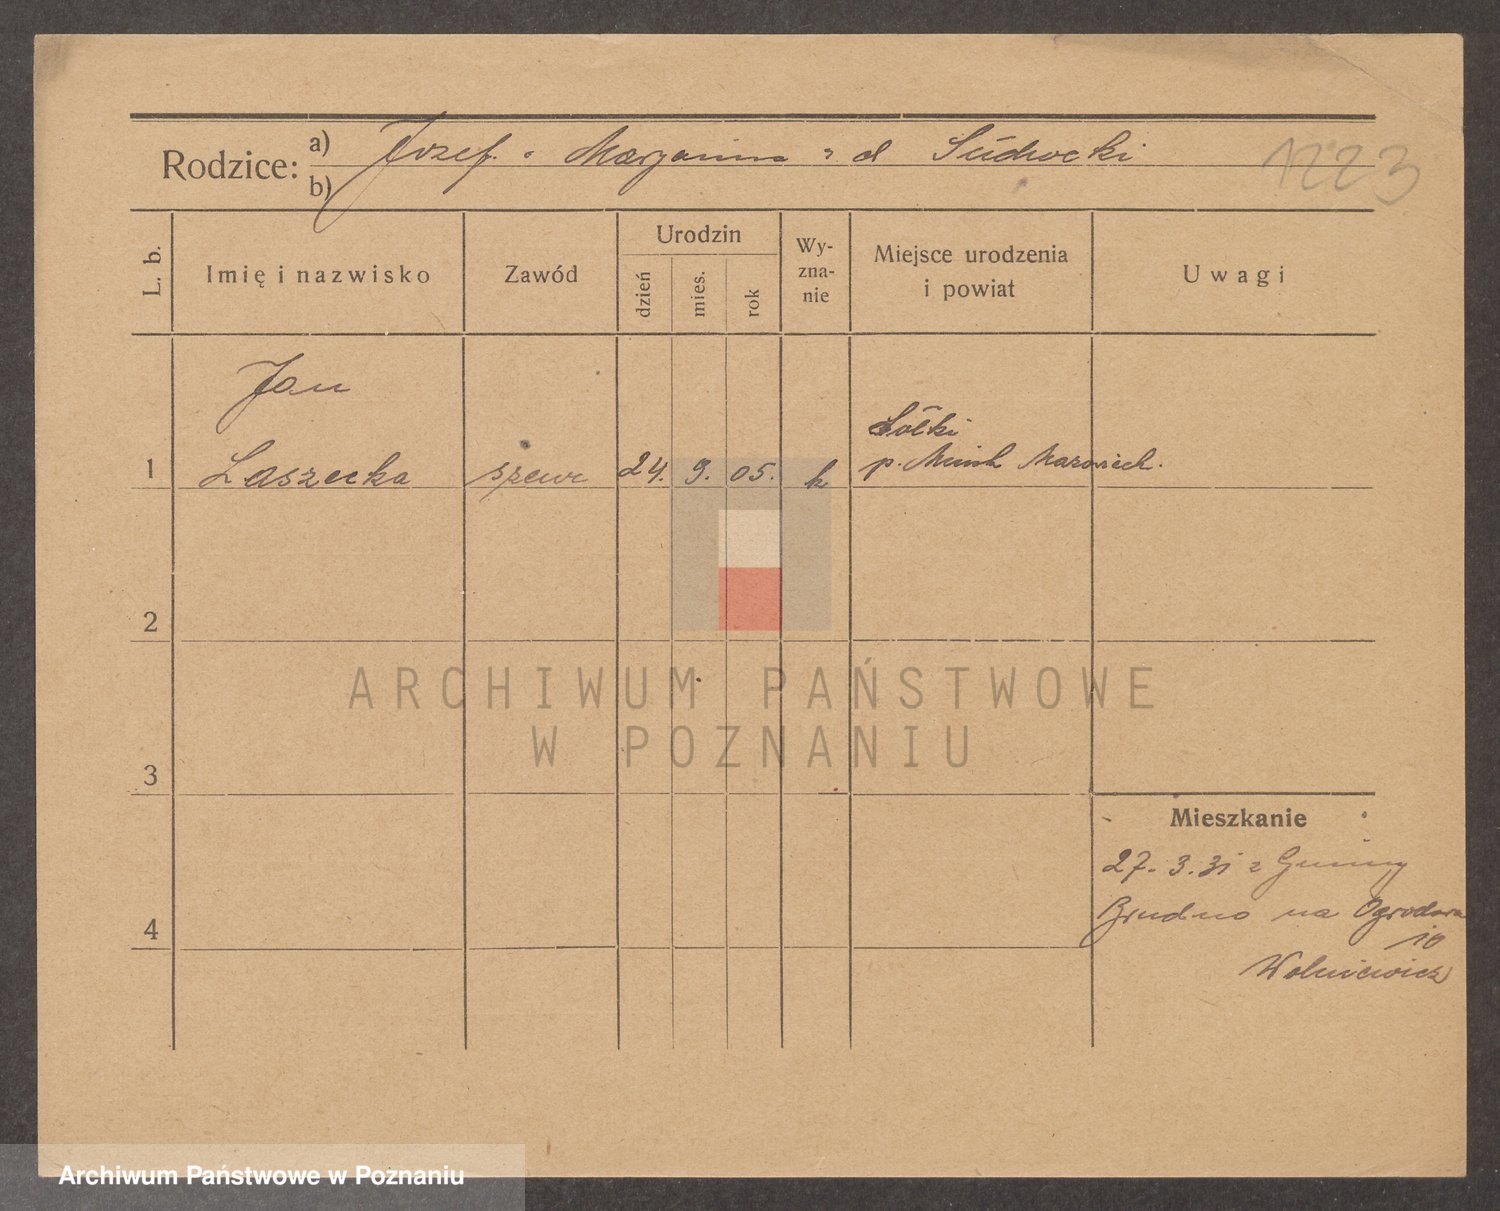 Rodzice: a) Józef. Maryanna z d Suchocki
b)
1223
L. b. Imię i nazwisko Zawód Urodzin dzień mies. rok Wy-zna-nie Miejsce urodzenia i powiat Uwagi
Jan
1 Laszecka szewc 24. 9. 05. k
p. Minsk Mazowieck.
2
ARCHIWUM PAŃSTWOWE
W POZNANIU
3
Mieszkanie
27. 3. 31 z Gminy
4 Brudno na Ogrodowa
10
Wolniewicz
Archiwum Państwowe w Poznaniu